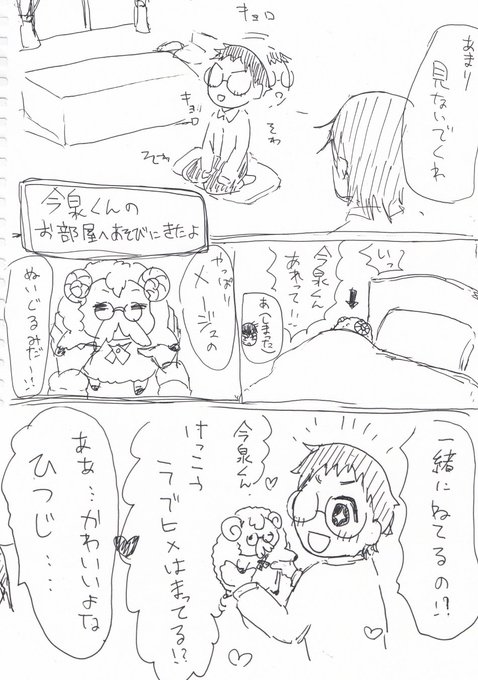 あまり
見ないでくれ
キョロ
キョロ
そわ
そわ
今泉くんの
お部屋へあそびにきたよ
いっ
今泉くん
あれって…
あ(しまった)
やっぱり
メージュの
ぬいぐるみだー!!
一緒にねてるの!?
今泉くん
けっこう
ラブヒメはまってる!?
ああ…かわいいよな
ひつじ……